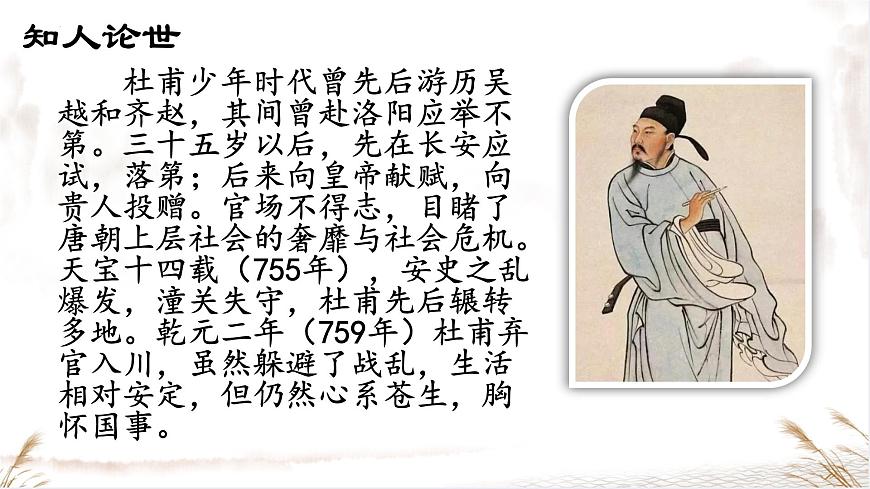 知人论世
杜甫少年时代曾先后游历吴
越和齐赵，其间曾赴洛阳应举不
第。三十五岁以后，先在长安应
试，落第；后来向皇帝献赋，向
贵人投赠。官场不得志，目睹了
唐朝上层社会的奢靡与社会危机。
天宝十四载（755年），安史之乱
爆发，潼关失守，杜甫先后辗转
多地。乾元二年（759年）杜甫弃
官入川，虽然躲避了战乱，生活
相对安定，但仍然心系苍生，胸
怀国事。